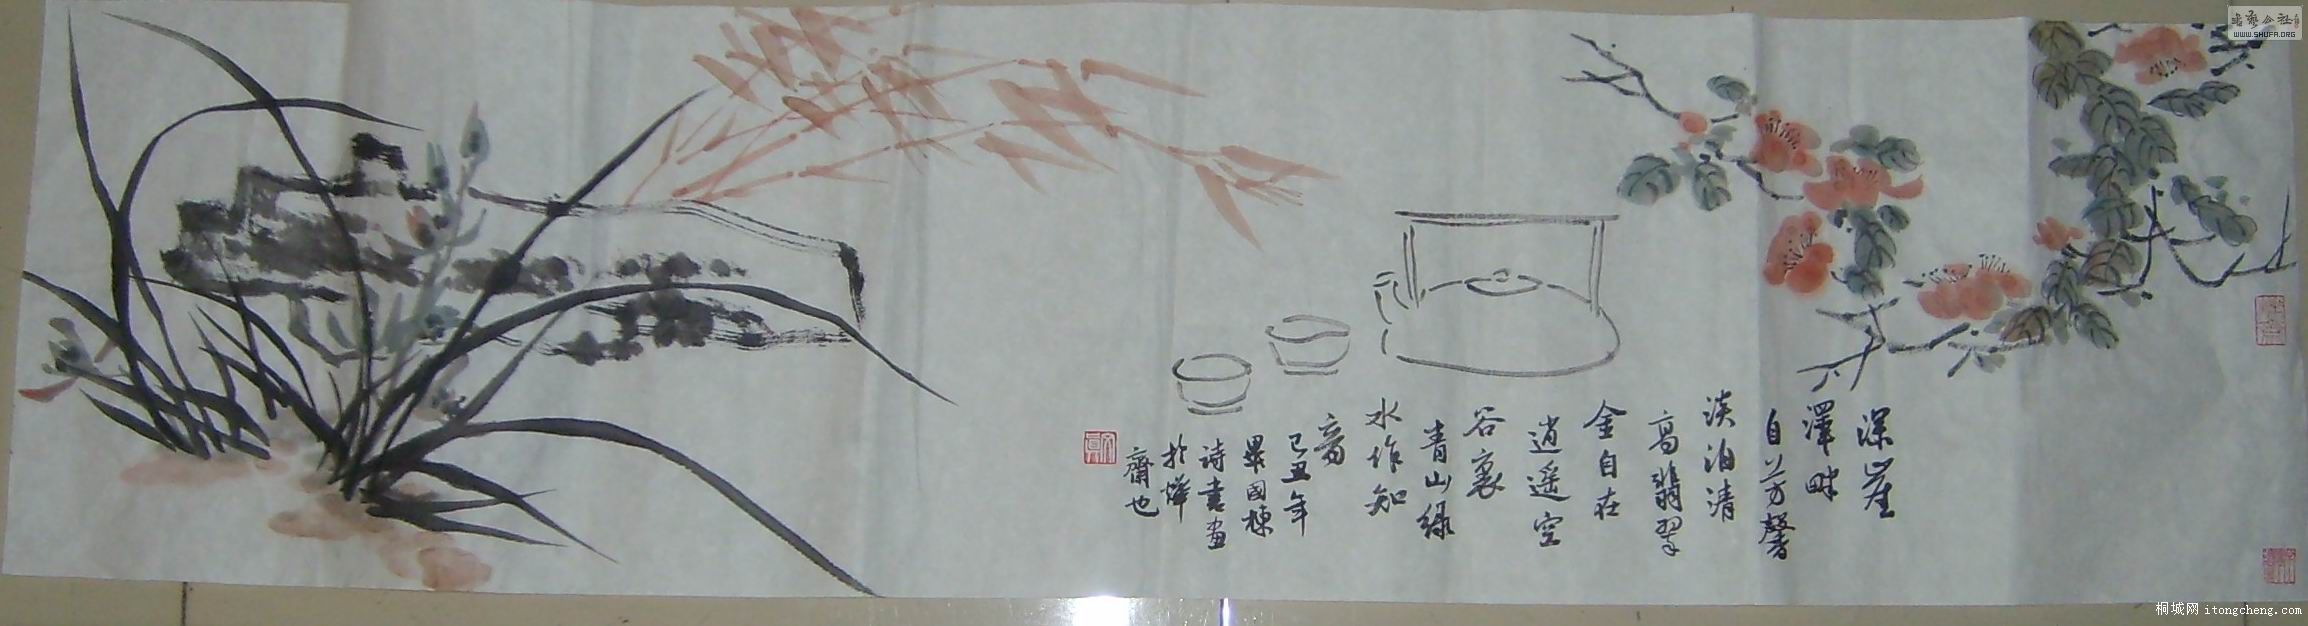 深崖
澤畔
自芳馨
淡泊清
高翡翠
金自在
逍遥空
谷裏
青山緑
水作知
音
己丑年
畢國棟
诗書畫
於
齋也
WWW.SHUFA.ORG
桐城网 itongcheng.com